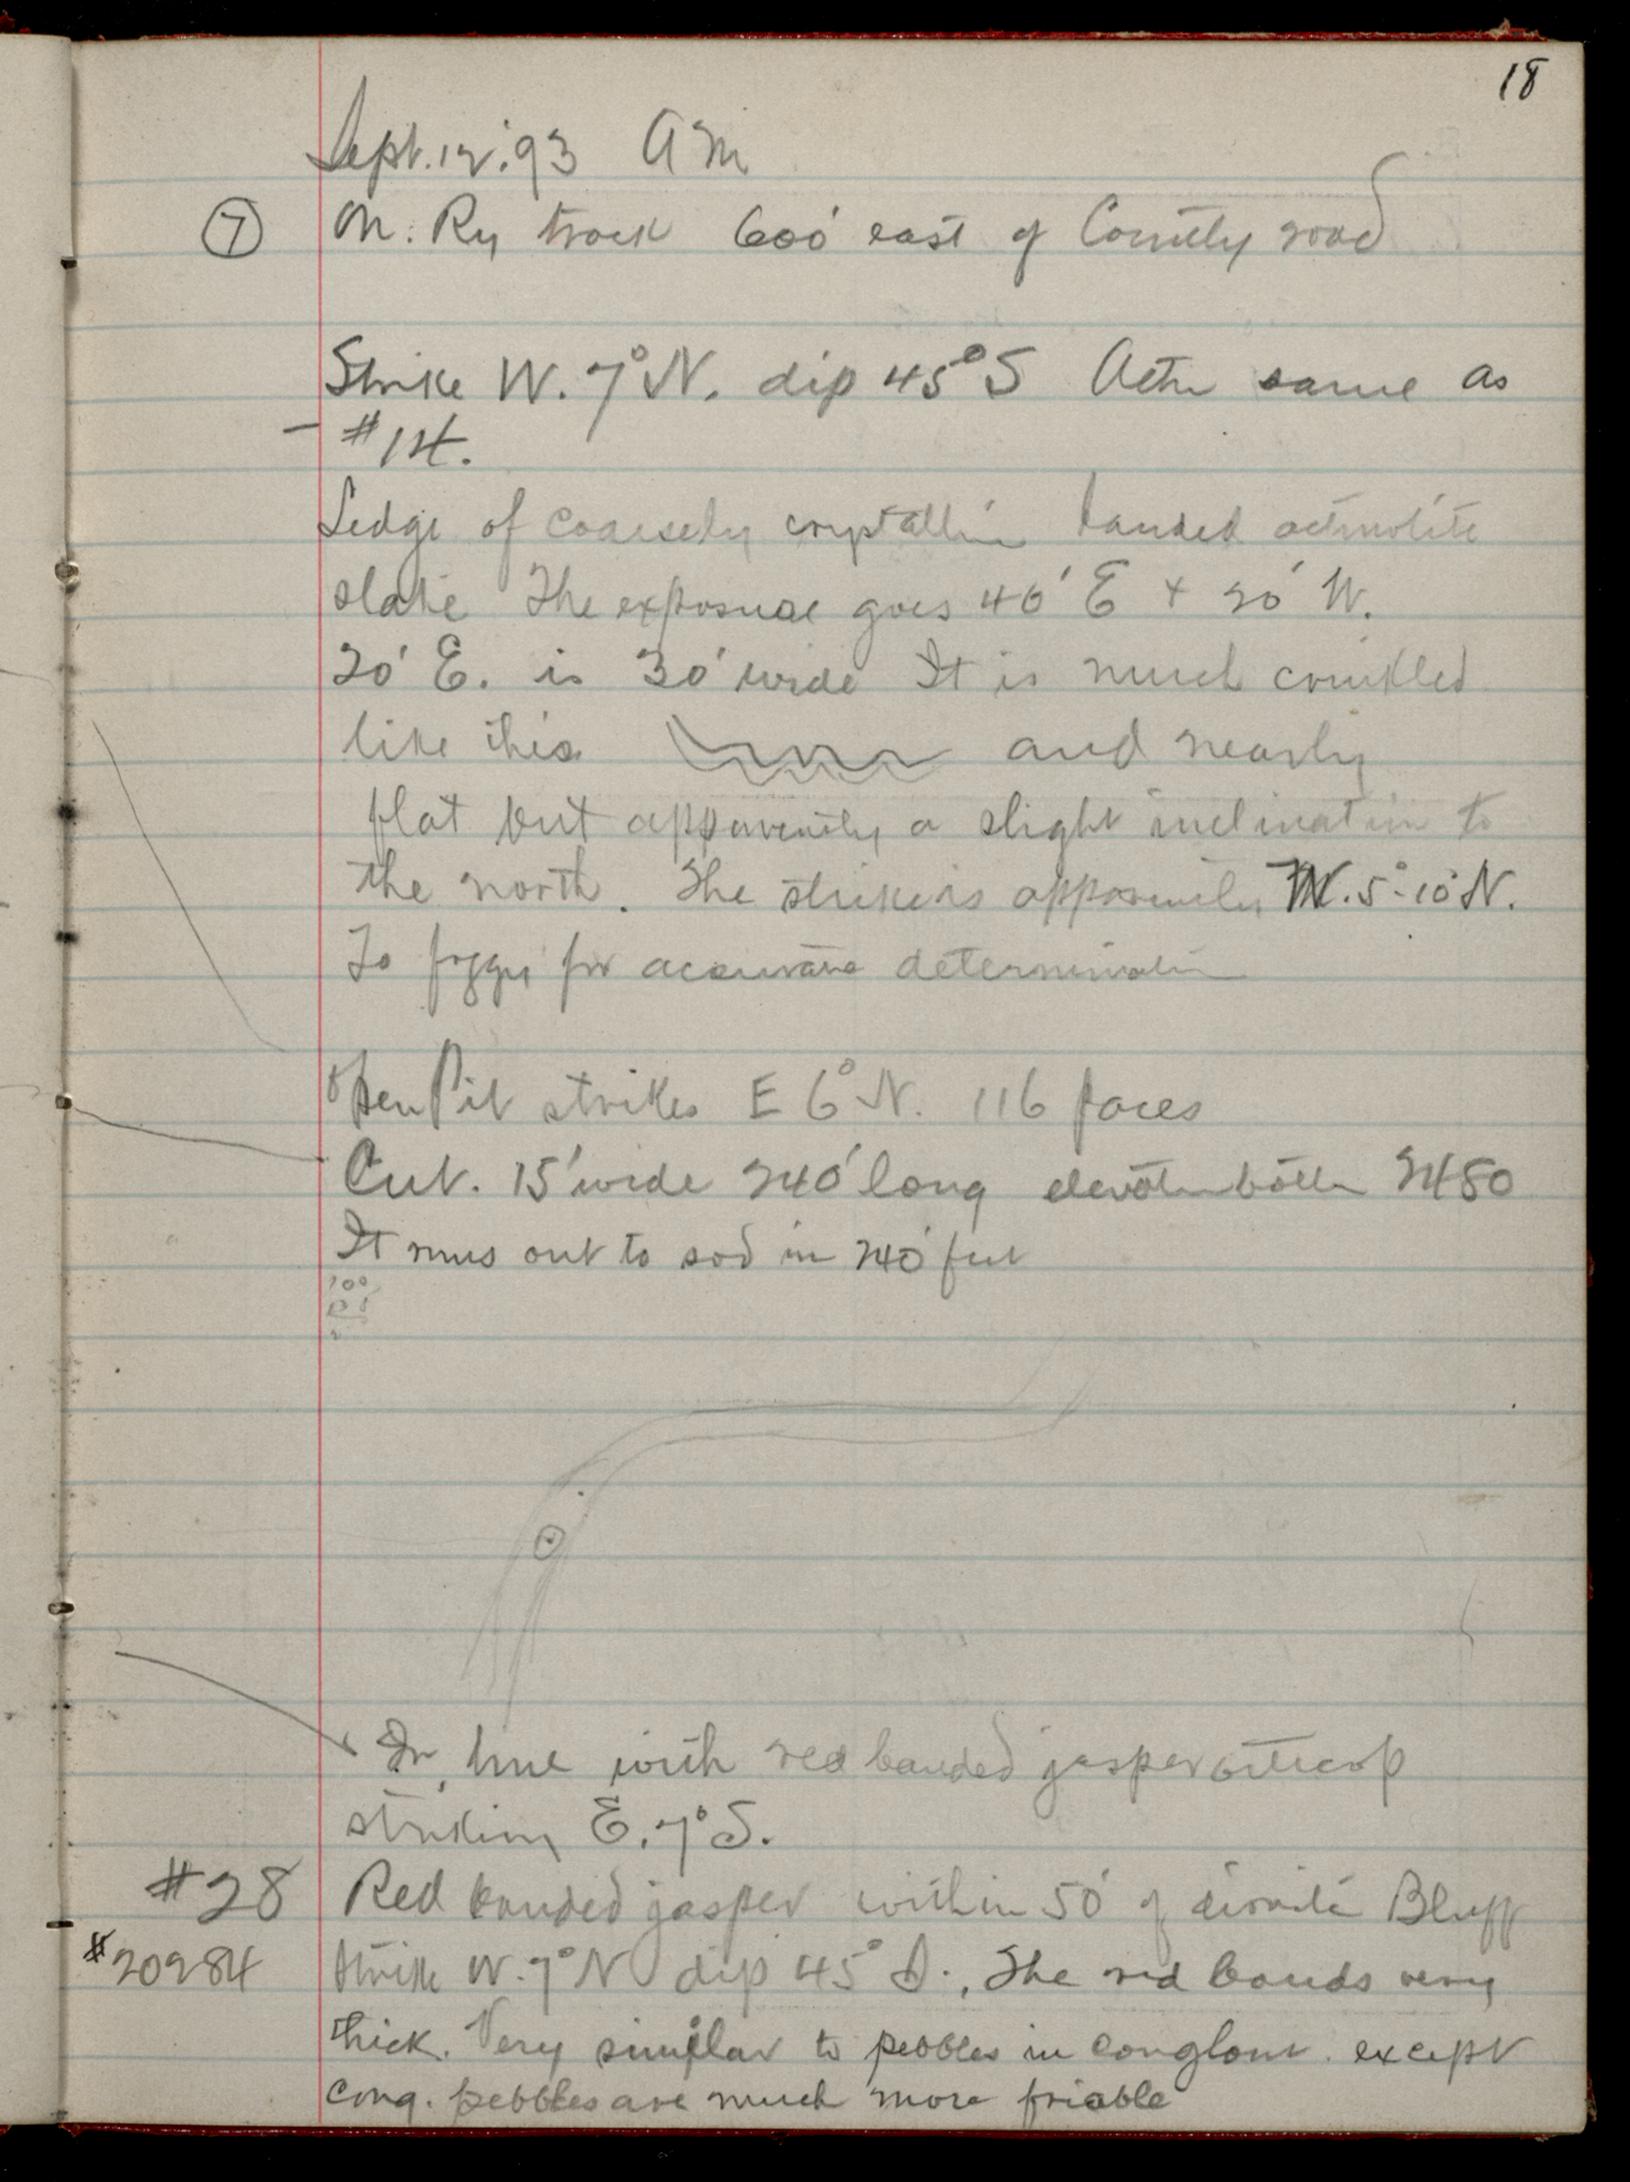 18
Sept. 12. 93 AM
7 On. Ry track 600' east of County road
Strike W. 7° N. dip 45° S Actn same as
- #14.
Ledge of coarsely crystallin banded actinolite
slate The exposure goes 40' E + 20' W.
20' E. is 30' wide It is much crinkled
like this and nearly
flat but apparently a slight inclination to
the north. The strike is apparently W. 5°-10° N.
To foggy for accurate determination
Open Pit strikes E 6° N. 116 paces
Cut. 15' wide 240' long elevation bottom 2480
It runs out to sod in 240 feet
100
In line with red banded jasper outcrop
striking E. 7° S.
#28 Red banded jasper within 50' of Bluff
#20284 Strike W. 7° N dip 45° S. The red bands very
thick. Very similar to pebbles in conglom. except
cong. pebbles are much more friable